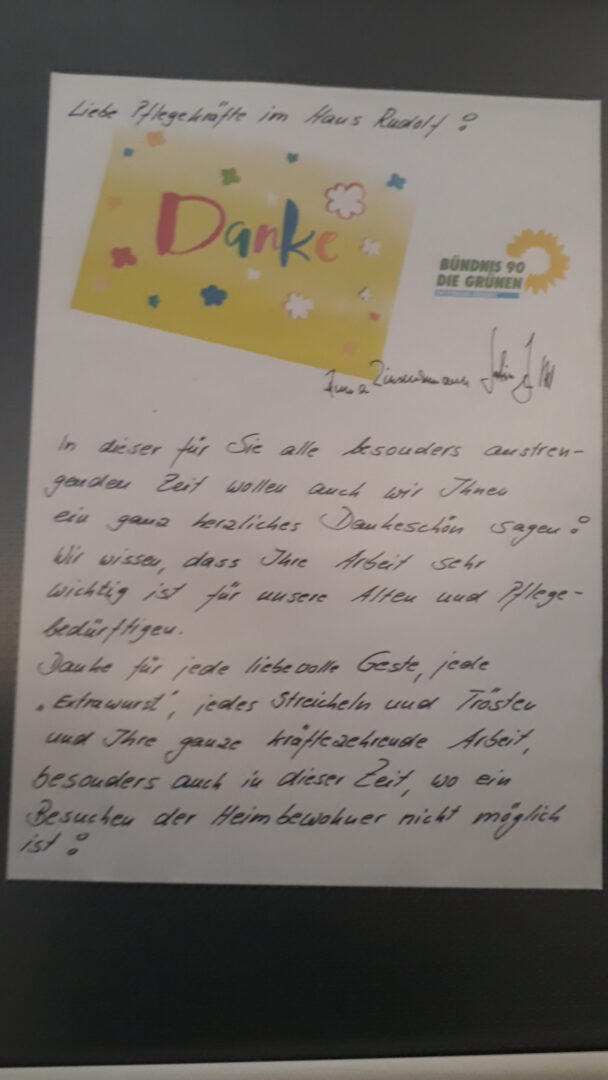 Liebe Pflegekräfte im Haus Rudolf!
Danke
BÜNDNIS 90
DIE GRÜNEN
Anna Zimmermann
In dieser für Sie alle besonders anstren-
genden Zeit wollen auch wir Ihnen
ein ganz herzliches Dankeschön sagen!
Wir wissen, dass Ihre Arbeit sehr
wichtig ist für unsere Alten und Pflege-
bedürftigen.
Danke für jede liebevolle Geste, jede
„Extrawurst", jedes Streicheln und Trösten
und Ihre ganze kräftezehrende Arbeit,
besonders auch in dieser Zeit, wo ein
Besuchen der Heimbewohner nicht möglich
ist!